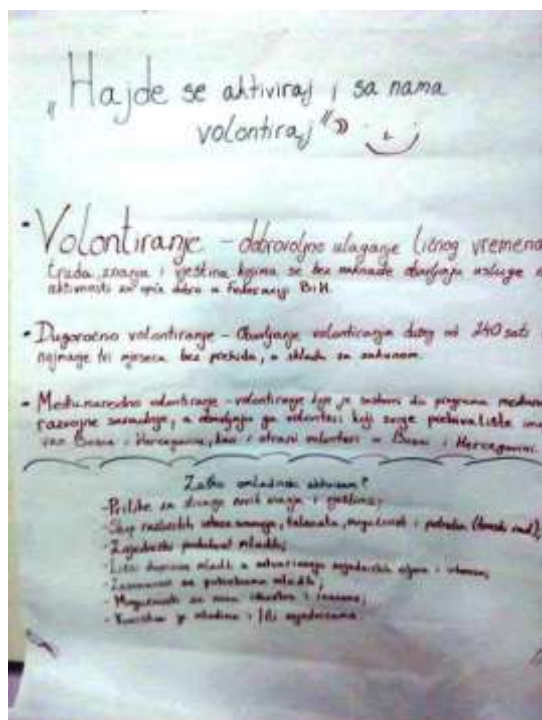 "Hajde se aktiviraj i sa nama
volontiraj"
• Volontiranje - dobrovoljno ulaganje ličnog vremena
truda znanja i vještina kojima se bez naknade obavljaju usluge
aktivnosti za opće dobro u Federaciji BiH.
• Dugoročno volontiranje - Obavljanje volontiranja dužeg od 240 sati
najmanje tri mjeseca bez prekida, u skladu sa zakonom.
• Međunarodno volontiranje - volontiranje je sastavni dio programa
razvojne saradnje, a obavljaju ga volonteri koji svoje prebivalište
van Bosne i Hercegovine, kao i strani volonteri u Bosni i Hercegovini.
Zašto omladinski aktivizam?
- Prilike za sticanje novih znanja i vještina;
- Skup različitih talenata, mogućnosti i potreba (timski rad);
- Zajednički mladih;
- Lični doprinos mladih u ostvarivanju zajedničkih ciljeva i
- za potrebama mladih;
- Mogućnosti za nova iskustva i
- je mladima i/ili zajednicama.